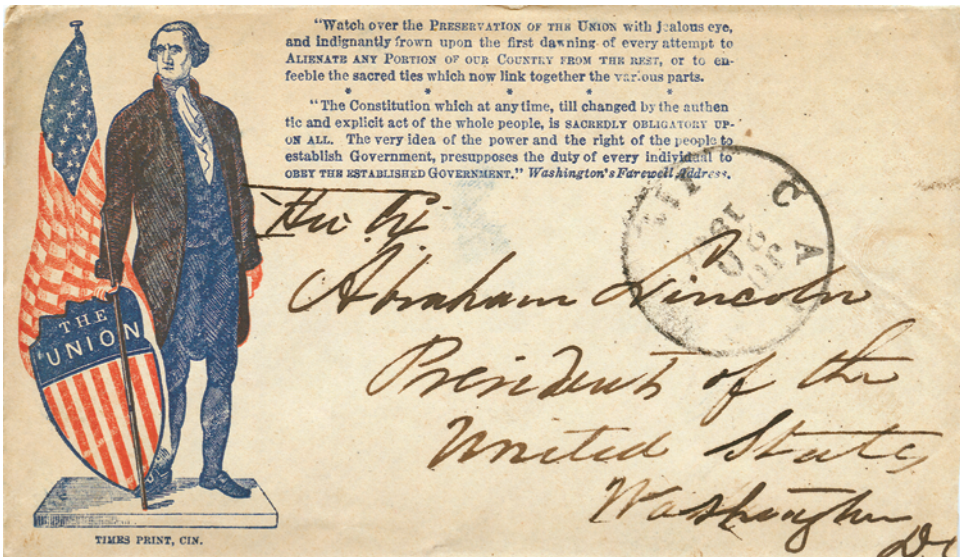 "Watch over the PRESERVATION OF THE UNION with jealous eye,
and indignantly frown upon the first dawning of every attempt to
ALIENATE ANY PORTION OF OUR COUNTRY FROM THE REST, or to en-
feeble the sacred ties which now link together the various parts.
* * * * *
"The Constitution which at any time, till changed by the authen
tic and explicit act of the whole people, is SACREDLY OBLIGATORY UP-
ON ALL. The very idea of the power and the right of the people to
establish Government, presupposes the duty of every individual to
OBEY THE ESTABLISHED GOVERNMENT." Washington's Farewell Address.
C A
Abraham Lincoln
President of the
United States
Washington
DC
THE
UNION
TIMES PRINT, CIN.